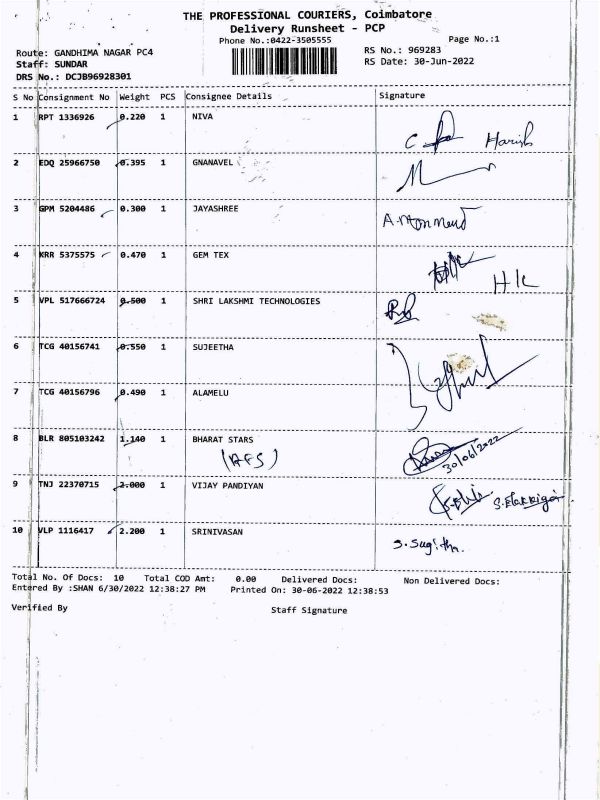 THE PROFESSIONAL COURIERS, Coimbatore
Delivery Runsheet - PCP
Phone No.:0422-3505555
Page No.:1
Route: GANDHIMA NAGAR PC4
RS No.: 969283
Staff: SUNDAR
RS Date: 30-Jun-2022
DRS No.: DCJB96928301
S No Consignment No Weight PCS Consignee Details Signature
1 RPT 1336926 0.220 1 NIVA
Harish
2 EDQ 25966750 0.395 1 GNANAVEL
3 GPM 5204486 0.300 1 JAYASHREE
4 KRR 5375575 0.470 1 GEM TEX
H/L
5 VPL 517666724 0.500 1 SHRI LAKSHMI TECHNOLOGIES
6 TCG 40156741 0.550 1 SUJEETHA
7 TCG 40156796 0.490 1 ALAMELU
8 BLR 805103242 1.140 1 BHARAT STARS
(AFS)
30/06/2022
9 TNJ 22370715 2.000 1 VIJAY PANDIYAN
10 VLP 1116417 2.200 1 SRINIVASAN
Total No. Of Docs: 10 Total COD Amt: 0.00 Delivered Docs: Non Delivered Docs:
Entered By :SHAN 6/30/2022 12:38:27 PM Printed On: 30-06-2022 12:38:53
Verified By Staff Signature